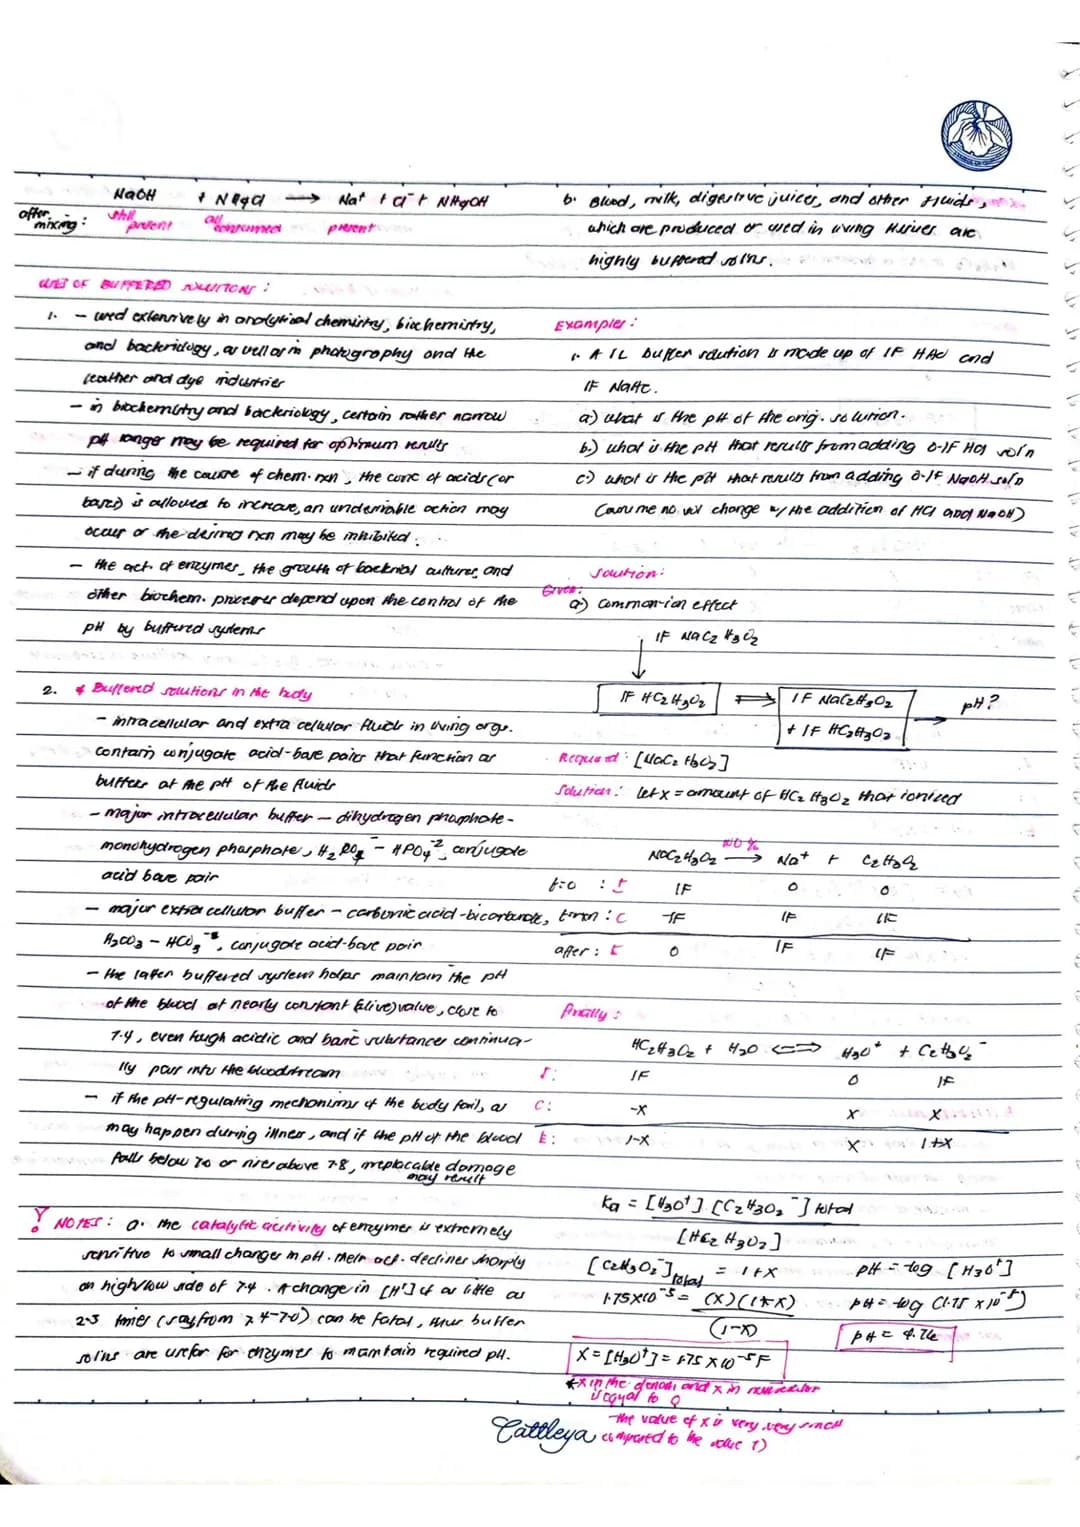 NaOH + NH4Cl → Na+ + Cl- + NH4OH
after mixing: still present all consumed present
USES OF BUFFERED SOLUTIONS:
1. - used extensively in analytical chemistry, biochemistry,
and bacteriology, as well as in photography and the
leather and dye industries
- in biochemistry and bacteriology, certain rather narrow
pH ranges may be required for optimum results
- if during the course of chem. rxn, the conc of acids (or
bases) is allowed to increase, an undesirable action may
occur or the desired rxn may be inhibited.
- the act. of enzymes, the growth of bacterial cultures, and
other biochem. processes depend upon the control of the
pH by buffered systems
2. * Buffered solutions in the body
- intracellular and extra cellular fluids in living orgs.
contain conjugate acid-base pairs that function as
buffers at the pH of the fluids
- major intracellular buffer - dihydrogen phosphate-
monohydrogen phosphate, H2PO4- - HPO4-2, conjugate
acid base pair
- major extracellular buffer - carbonic acid-bicarbonate,
H2CO3 - HCO3-, conjugate acid-base pair
- the latter buffered system helps maintain the pH
of the blood at nearly constant (alive) value, close to
7.4, even tough acidic and basic substances continua-
lly pass into the bloodstream
- if the pH-regulating mechanisms of the body fail, as
may happen during illness, and if the pH of the blood
falls below 7.0 or rises above 7.8, irreplacable damage
may result
! NOTES: a. the catalytic activity of enzymes is extremely
sensitive to small changes in pH. their act. declines sharply
on high/low side of 7.4. A change in [H+] of as little as
2-3 times (say from 7.4-7.0) can be fatal, thus buffer
solns are useful for enzymes to maintain required pH.
b. Blood, milk, digestive juices, and other fluids,
which are produced or used in living tissues are
highly buffered solns.
Examples:
1. A 1L buffer solution is made up of 1F HAc and
1F NaAc.
a) what is the pH of the orig. solution.
b.) what is the pH that results from adding 0.1F HCl sol'n
c) what is the pH that results from adding 0.1F NaOH sol'n
(assume no vol change w/ the addition of HCl and NaOH)
Solution:
Given:
a) common-ion effect
1F NaC2H3O2
1F HC2H3O2 ⇌ 1F NaC2H3O2 → pH?
+ 1F HC2H3O2
Required: [NaC2H3O2]
Solution: let x = amount of HC2H3O2 that ionized
100%
NaC2H3O2 → Na+ + C2H3O2
t=0 : I 1F 0 0
t=rxn : C -1F 1F 1F
after : E 0 1F 1F
finally:
HC2H3O2 + H2O ⇌ H3O+ + C2H3O2-
I: 1F 0 1F
C: -x x x
E: 1-x x 1+x
Ka = [H3O+] [C2H3O2-] total
[HC2H3O2]
[C2H3O2-]total = 1+x
1.75x10-5 = (x)(1+x)
(1-x)
x = [H3O+] = 1.75 x 10-5 F
pH = -log [H3O+]
pH = -log (1.75 x 10-5)
pH = 4.76
*x in the denom and x in numerator
is equal to 0
-the value of x is very, very small
compared to the value 1)
Cattleya